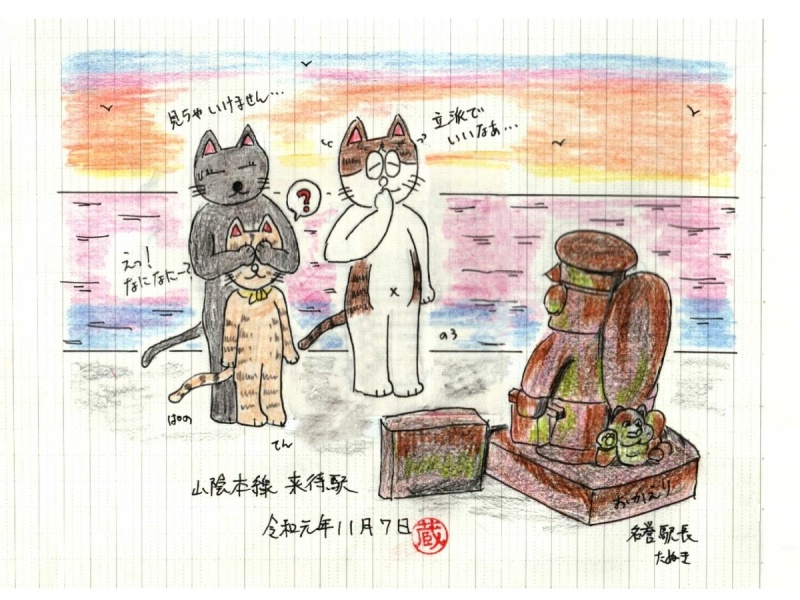 見ちゃいけません…
立派で
いいなぁ…
?
えっ!
なになにー?
のろ
ぱの
てん
山陰本線 来待駅
令和元年11月7日
蔵
おかえり
名誉駅長
たぬき